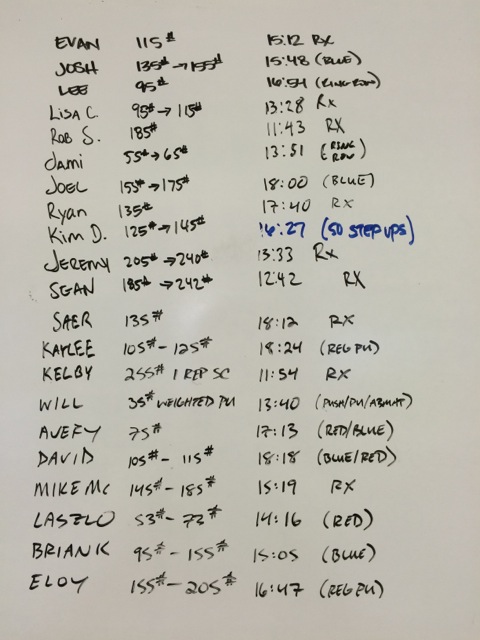 EVAN 115# 15:12 RX
JOSH 135# → 155# 15:48 (BLUE)
LEE 95# 16:54 (RING ROW)
LISA C. 95# → 115# 13:28 RX
ROB S. 185# 11:43 RX
Jami 55# → 65# 13:51 (RING ROW)
JOEL 155# → 175# 18:00 (BLUE)
Ryan 135# 17:40 RX
Kim D. 125# → 145# 16:27 (50 STEP UPS)
JEREMY 205# → 240# 13:33 RX
SEAN 185# → 242# 12:42 RX
SAER 135# 18:12 RX
KAYLEE 105# - 125# 18:24 (REG PU)
KELBY 255# 1 REP SC 11:54 RX
WILL 35# WEIGHTED PU 13:40 (PUSH/PU/ABMAT)
AVERY 75# 17:13 (RED/BLUE)
DAVID 105# - 115# 18:18 (BLUE/RED)
MIKE MC 145# - 185# 15:19 RX
LASZLO 53# - 73# 14:16 (RED)
BRIAN K 95# - 155# 15:05 (BLUE)
ELOY 155# - 205# 16:47 (REG PU)